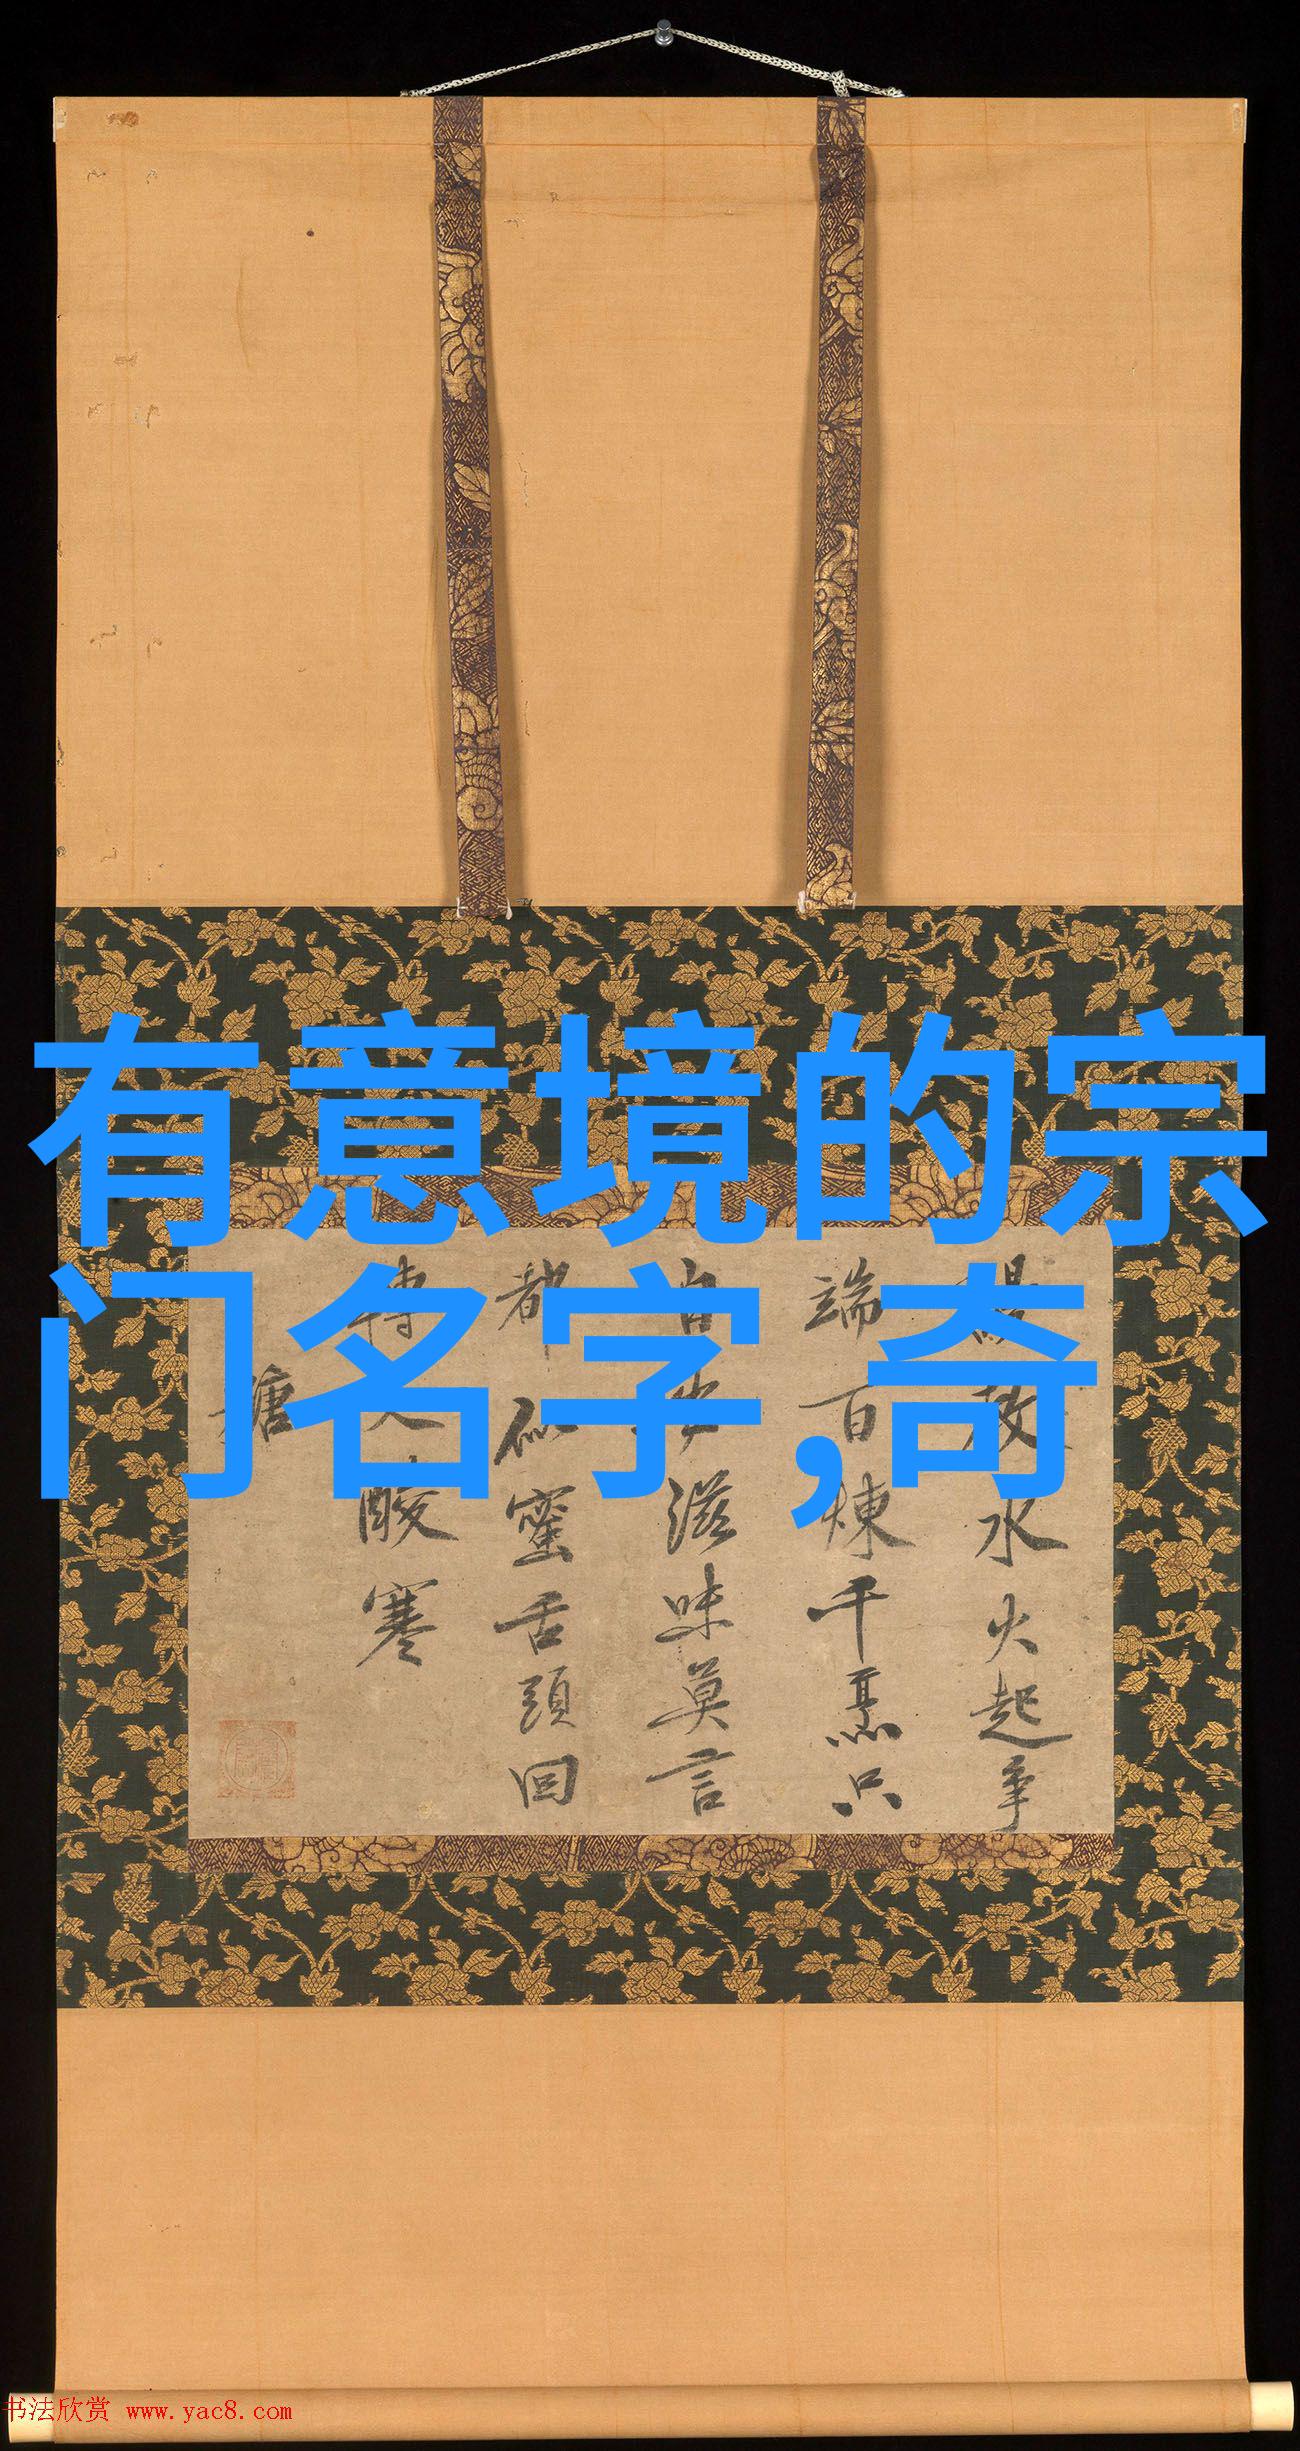 有意境的宗
门名字,奇
故水火起争
端百煉千烹只
自滋味莫言
都似蜜舌頭回
酸寒
塘
书法欣赏 www.yac8.com